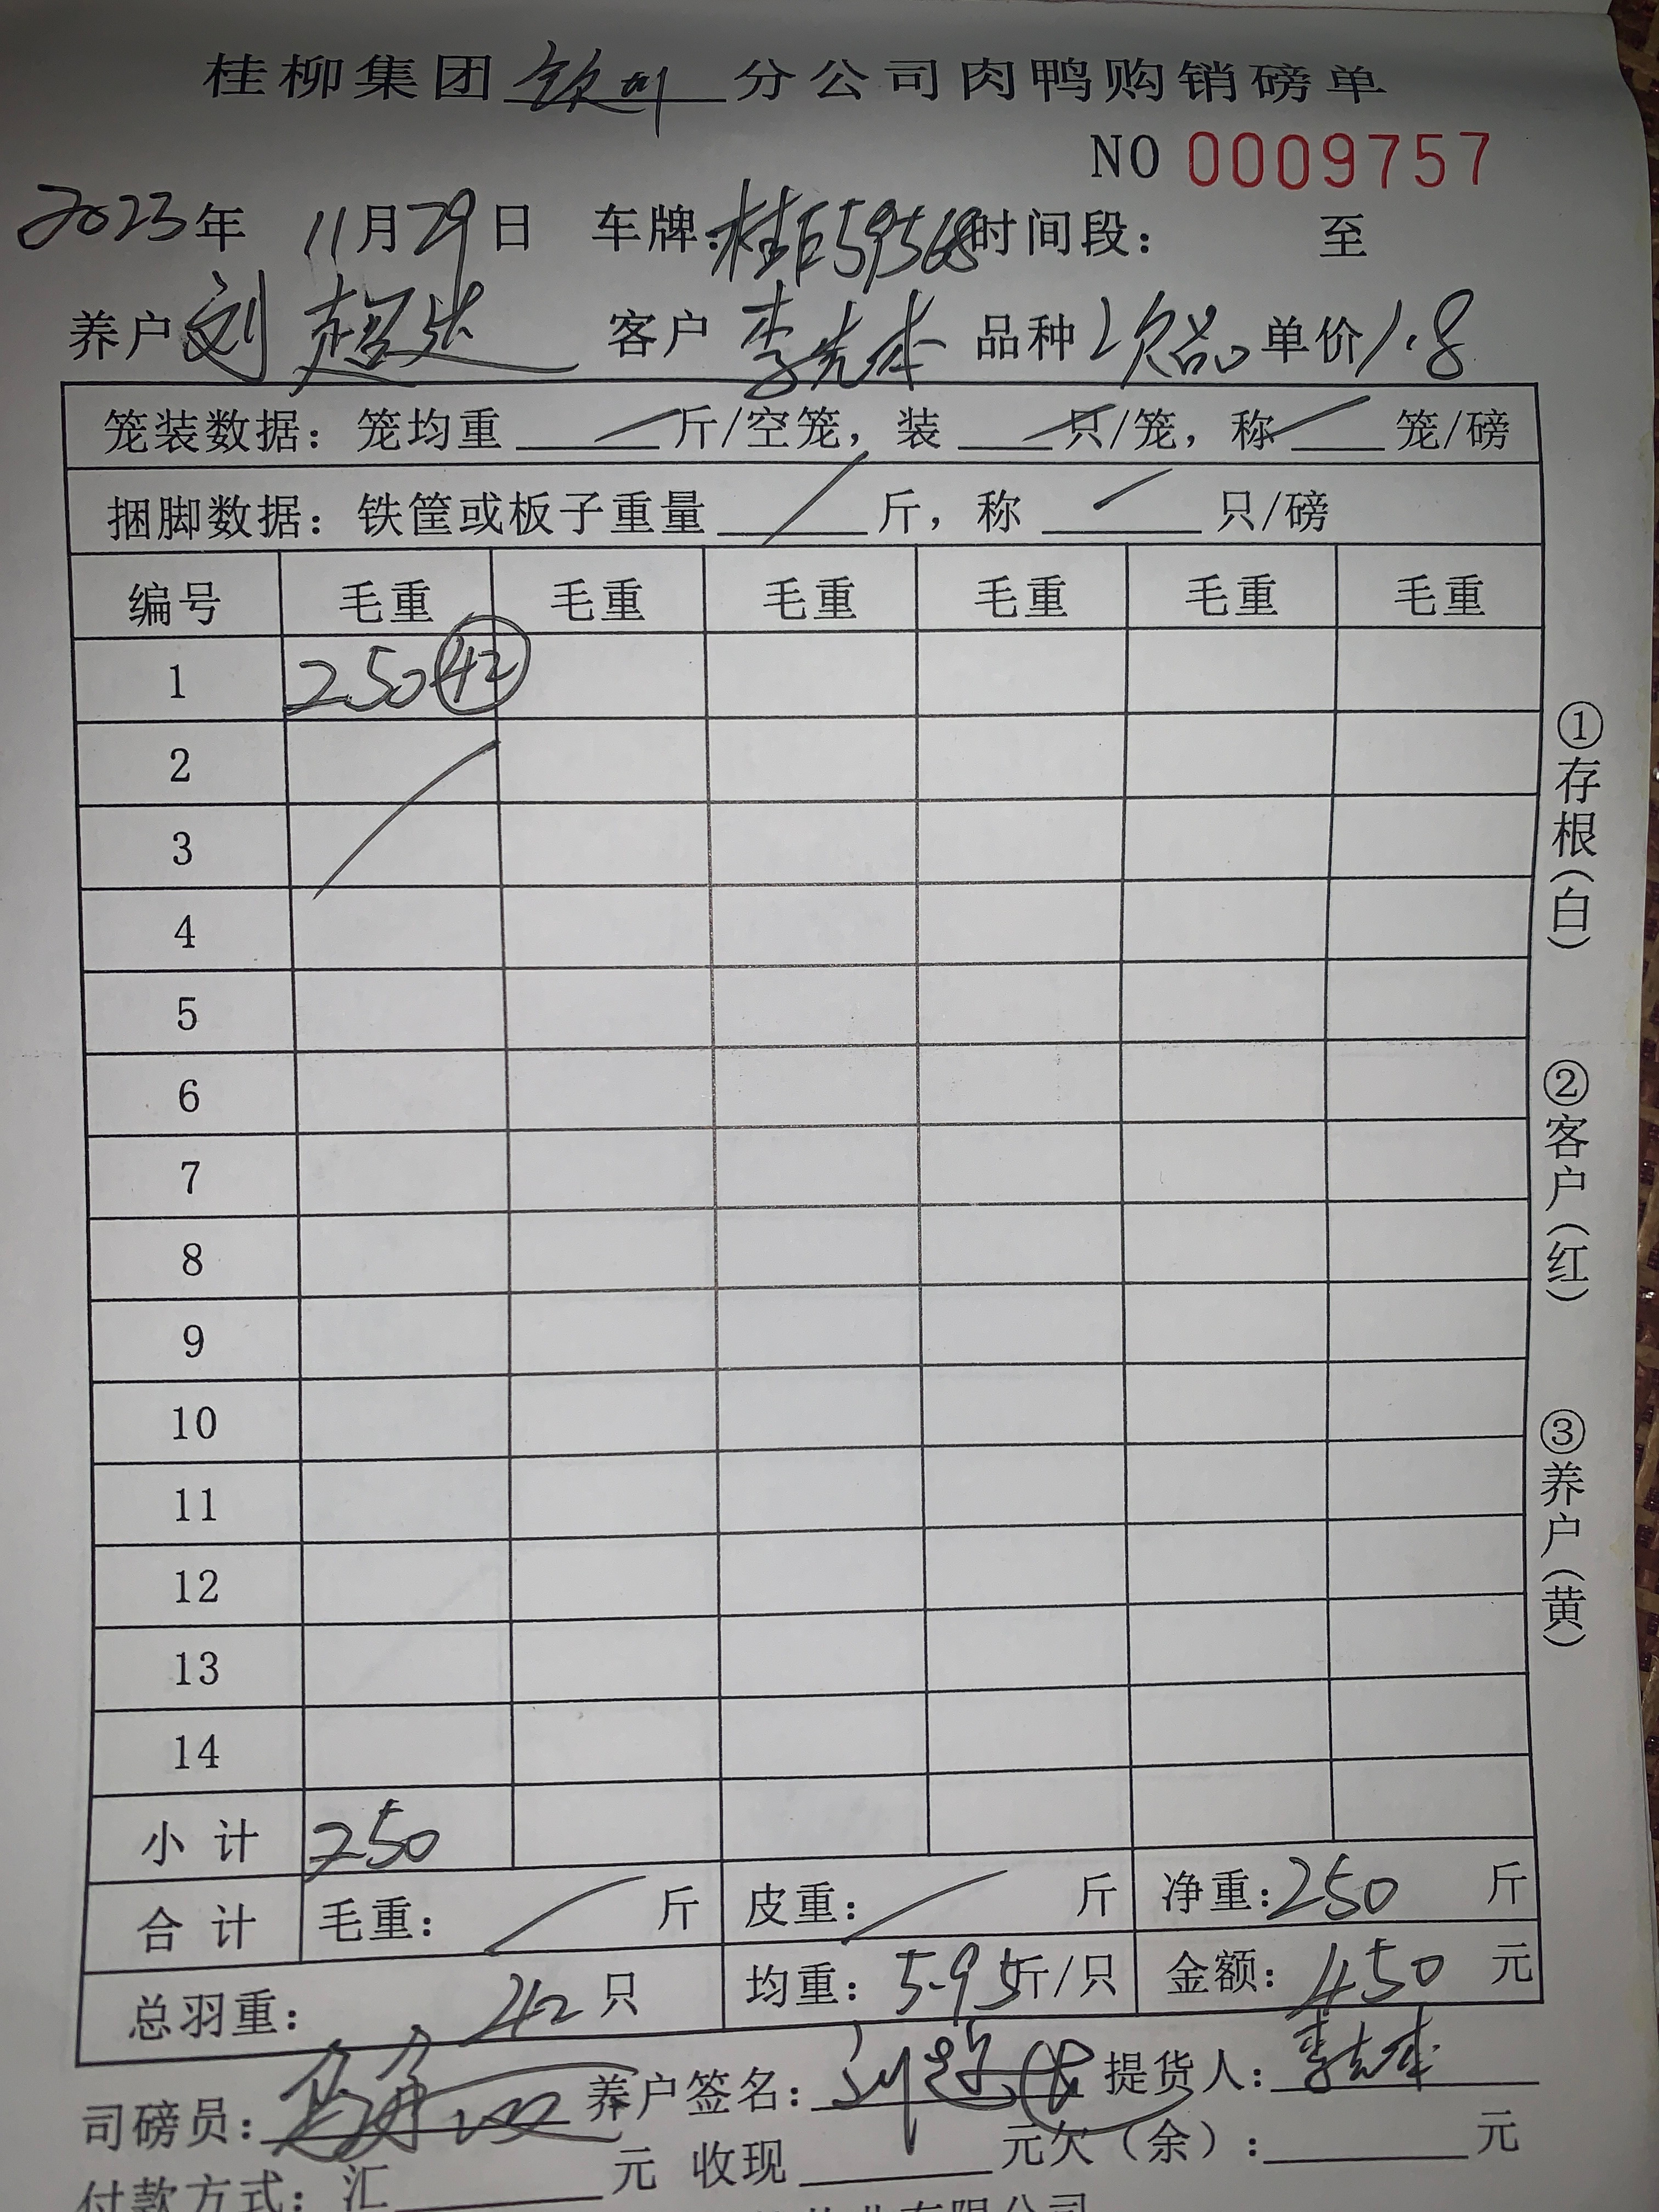 桂柳集团钦州分公司肉鸭购销磅单
NO 0009757
2023年 11月29日 车牌:桂E59568时间段： 至
养户刘超 客户李先 品种次品 单价1.8
笼装数据：笼均重 / 斤/空笼，装 / 只/笼，称 / 笼/磅
捆脚数据：铁筐或板子重量 / 斤，称 / 只/磅
编号 毛重 毛重 毛重 毛重 毛重 毛重
1 250 42
2
3
4
5
6
7
8
9
10
11
12
13
14
小计 250
合计 毛重： / 斤 皮重： / 斤 净重:250 斤
总羽重： 42只 均重：5.95斤/只 金额：450元
司磅员： 养户签名：刘 提货人：李先
付款方式：汇 元 收现 元欠（余）： 元
业有限公司
①存根（白）
②客户（红）
③养户（黄）